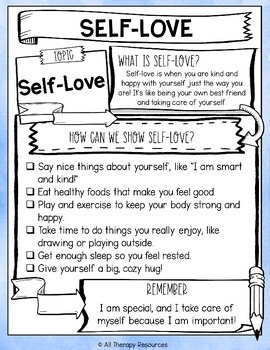 SELF-LOVE
TOPIC
Self-Love
WHAT IS SELF-LOVE?
Self-love is when you are kind and
happy with yourself just the way you
are! It's like being your own best friend
and taking care of yourself.
HOW CAN WE SHOW SELF-LOVE?
Say nice things about yourself, like "I am smart
and kind!"
Eat healthy foods that make you feel good.
Play and exercise to keep your body strong and
happy.
Take time to do things you really enjoy, like
drawing or playing outside.
Get enough sleep so you feel rested.
Give yourself a big, cozy hug!
REMEMBER
I am special, and I take care of
myself because I am important!
© All Therapy Resources